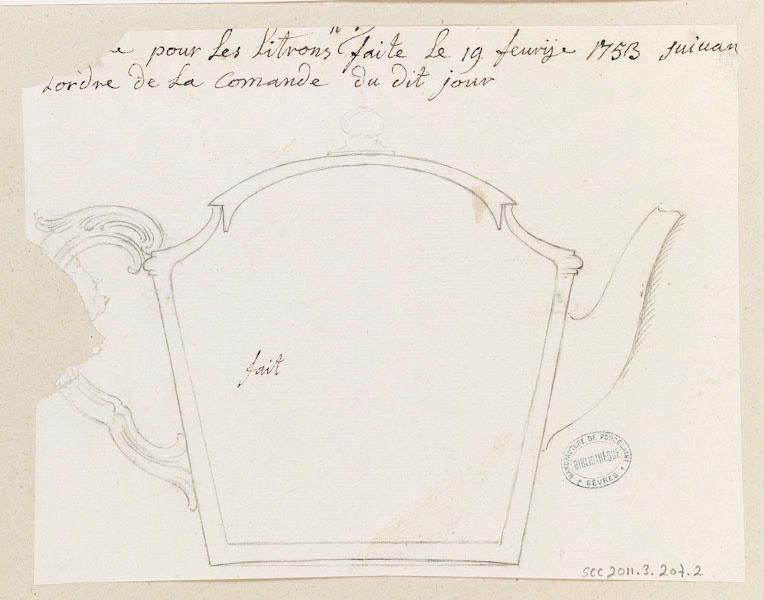 e pour Les Litrons faite Le 19 feurije 1753 suiuan
Lordre de La Comande du dit jour
fait
MANUFACTURE DE PORCELAINE
BIBLIOTHÈQUE
SÈVRES
SCC 2011.3.207.2